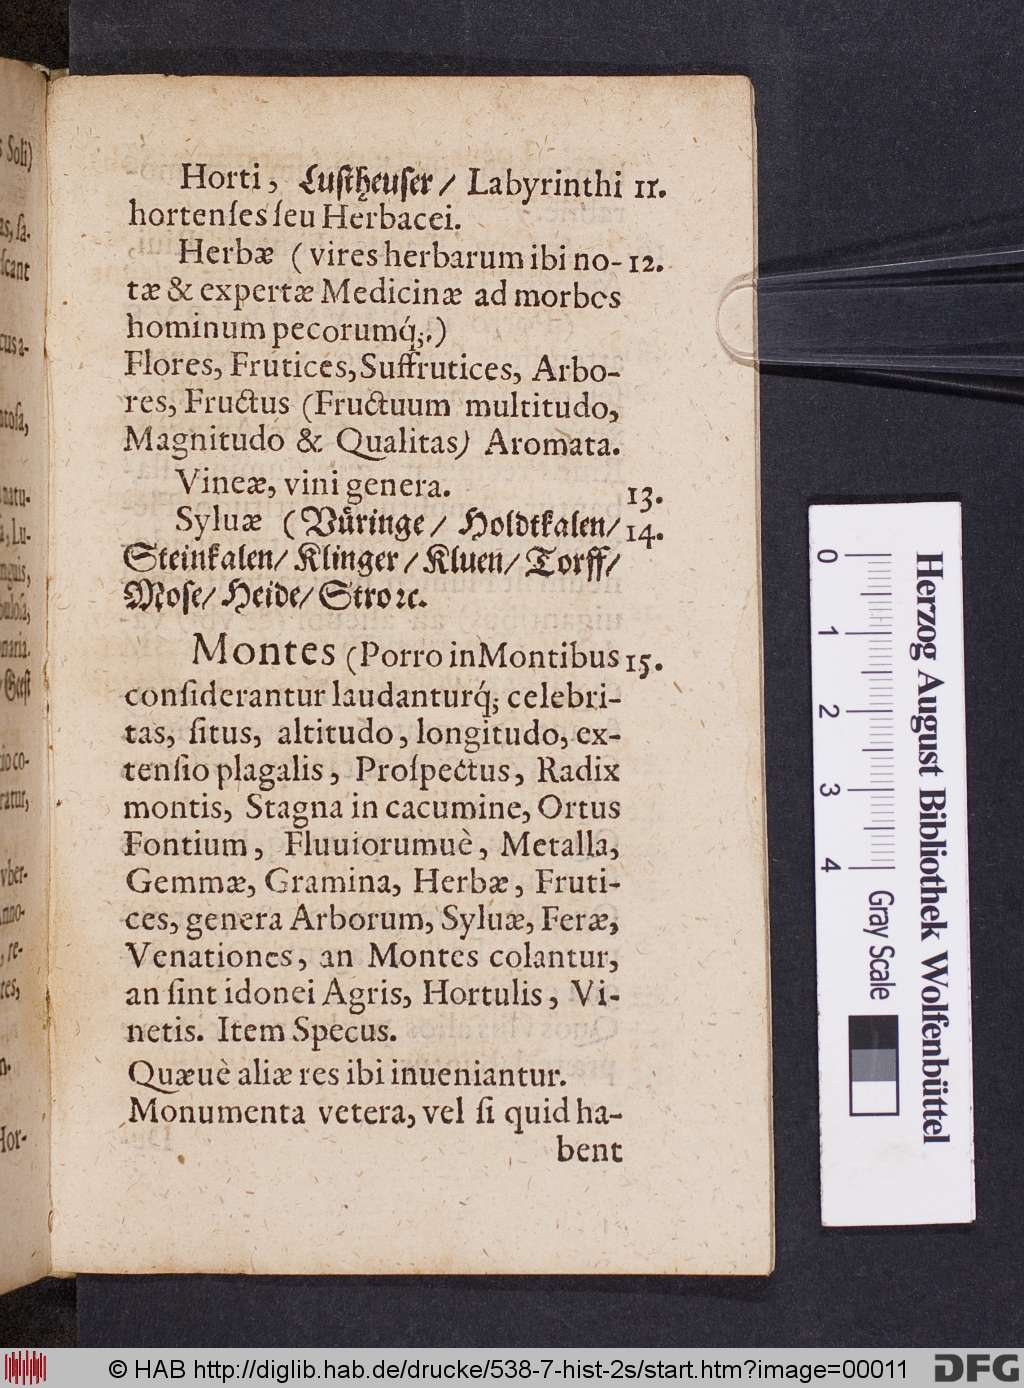 Horti, Luſtheuſer / Labyrinthi 11.
hortenſes ſeu Herbacei.
Herbæ ( vires herbarum ibi no- 12.
tæ & expertæ Medicinæ ad morbos
hominum pecorumq́;.)
Flores, Frutices, Suffrutices, Arbo-
res, Fructus (Fructuum multitudo,
Magnitudo & Qualitas) Aromata.
Vineæ, vini genera. 13.
Syluæ ( Vüringe / Holdtkalen/ 14.
Steinkalen/ Klinger / Kluen/ Torff/
Moſe/ Heide/ Stro ꝛc.
Montes (Porro in Montibus 15.
conſiderantur laudanturq́; celebri-
tas, ſitus, altitudo, longitudo, ex-
tenſio plagalis, Proſpectus, Radix
montis, Stagna in cacumine, Ortus
Fontium, Fluuiorumuè, Metalla,
Gemmæ, Gramina, Herbæ, Fruti-
ces, genera Arborum, Syluæ, Feræ,
Venationes, an Montes colantur,
an ſint idonei Agris, Hortulis, Vi-
netis. Item Specus.
Quæuè aliæ res ibi inueniantur.
Monumenta vetera, vel ſi quid ha-
bent
0 1 2 3 4 Gray Scale
Herzog August Bibliothek Wolfenbüttel
© HAB http://diglib.hab.de/drucke/538-7-hist-2s/start.htm?image=00011
DFG